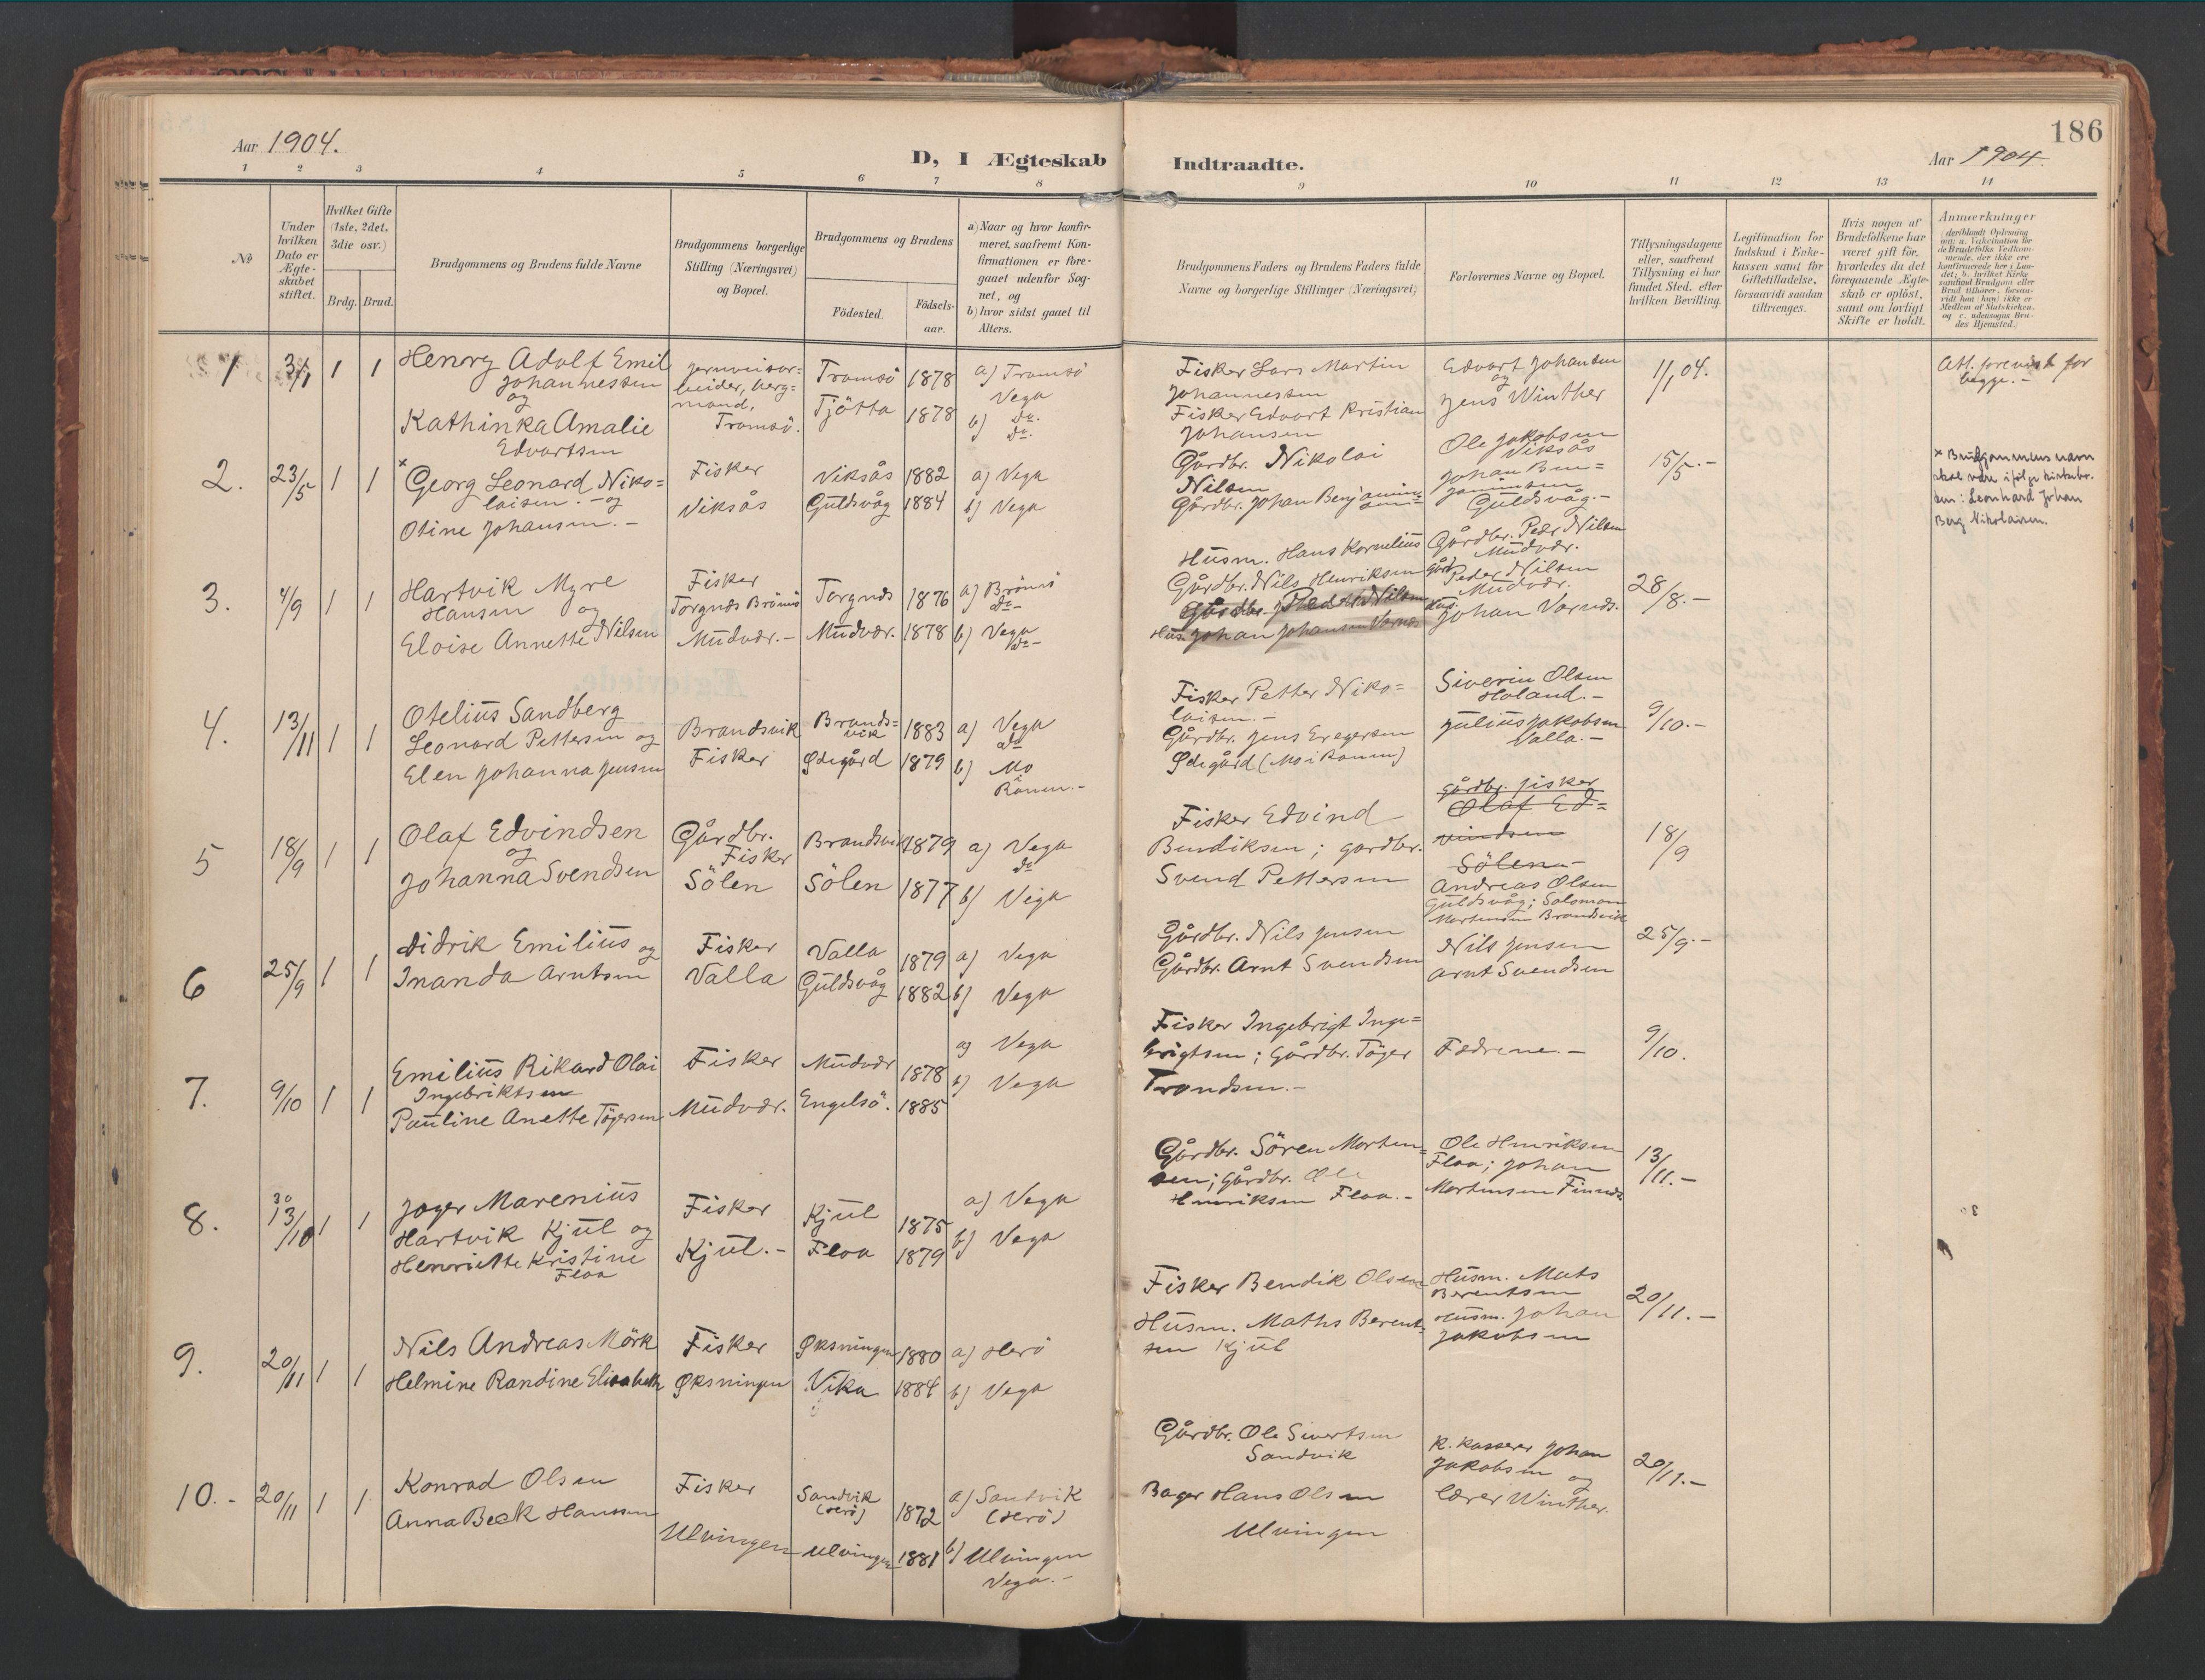 186
Aar 1904.
D, I Ægteskab Indtraadte.
Aar 1904.
1 2 3 4 5 6 7 8 9 10 11 12 13 14
No
Under hvilken Dato er Ægteskabet stiftet.
Hvilket Gifte (1ste, 2det, 3die osv.)
Brdg. Brud.
Brudgommens og Brudens fulde Navne
Brudgommens borgerlige Stilling (Næringsvei) og Bopæl.
Brudgommens og Brudens
Fødested.
Fødselsaar.
a) Naar og hvor konfirmeret, saafremt Konfirmationen er foregaaet udenfor Sognet, og
b) hvor sidst gaaet til Alters.
Brudgommens Faders og Brudens Faders fulde Navne og borgerlige Stillinger (Næringsvei)
Forlovernes Navne og Bopæl.
Tillysningsdagene eller, saafremt Tillysning ei har fundet Sted, efter hvilken Bevilling.
Legitimation for Indskud i Enkekassen samt for Giftetilladelse, forsaavidt saadan tiltrænges.
Hvis nogen af Brudefolkene har været gift før, hvorledes da det foregaaende Ægteskab er opløst, samt om lovligt Skifte er holdt.
Anmerkninger (deriblandt Oplysning om: a. Vakcination for de Brudefolks Vedkommende, der ikke ere konfirmerede her i Landet; b. hvilket Kirkesamfund Brudgom eller Brud tilhører, forsaavidt han (hun) ikke er Medlem af Statskirken, og c. udensogns Brudes Hjemsted.)
1 3/1 1 1
Henry Adolf Emil
Johannessen
og
Kathinka Amalie
Edvartsen
Jernveisar=
beider, berg=
mand,
Tromsö.
Tromsö 1878
Tjötta 1878
a) Tromsö
Vega
b) do.
do.
Fisker Lars Martin
Johannessen
Fisker Edvart Kristian
Johansen
Edvart Johansen
og
Jens Winther
1/1 04.
Att. forevist for
begge. -
2. 23/5 1 1
x Georg Leonard Niko=
laisen. - og
Otine Johansen. -
Fisker
Viksås
Viksås 1882
Guldsvåg 1884
a) Vega
b) Vega
Gårdbr. Nikolai
Nilsen
Gårdbr. Johan Benjamin=
Ole Jakobsen
Viksås
Johan Ben=
jaminsen
Guldsvåg. -
15/5. -
x Brudgommens navn
skal være ifølge kirkebo.
Leonhard Johan
Berg Nikolaisen.
3. 4/9 1 1
Hartvik Myre
Hansen og
Eloise Annette Nilsen
Fisker
Torgnes Brönö
Mudvær. -
Torgnes 1876
Mudvær. 1878
a) Brönö
do -
b) Vega
do -
Husm. Hans Kornelius
Gårdbr. Nils Henriksen
Gårdbr. Peder Nilsen
Hus. Johan Johansen Vornes
Gårdbr. Peder Nilsen
Mudvær.
Peder Nilsen
Mudvær.
Johan Vornes.
28/8. -
4. 13/11 1 1
Otelius Sandberg
Leonard Pettersen og
Elen Johanna Jensen
Brandsvik
Fisker
Brands=
vik 1883
Ødegård 1879
a) Vega
do
b) Mo
i
Ranen. -
Fisker Petter Niko=
laisen. -
Gårdbr. Jens Eregersen
Ødegård (Mo i Ranen)
Siverin Olsen
Holand. -
Julius Jakobsen
Valla. -
9/10. -
5 18/9 1 1
Olaf Edvindsen
og
Johanna Svendsen
Gårdbr.
Fisker
Sölen
Brandsvik 1879
Sölen 1877
a) Vega
do
b) Vega
Fisker Edvind
Bendiksen; gardbr.
Svend Pettersen
Gårdbr. fisker
Olaf Ed=
vindsen
Sölen -
Andreas Olsen
Guldsvåg; Salomon
Mortensen Brandsvik
18/9
6 25/9 1 1
Didrik Emilius og
Inanda Arntsen
Fisker
Valla
Valla 1879
Guldsvåg 1882
a) Vega
b) Vega
Gårdbr. Nils Jensen
Gårdbr. Arnt Svendsen
Nils Jensen
Arnt Svendsen
25/9. -
7. 9/10 1 1
Emilius Rikard Olai
Ingebriktsen
Pauline Anette Tögersen
Fisker
Mudvær.
Mudvær 1878
Engelsö. 1885
a) Vega
b) Vega
Fisker Ingebrigt Inge=
brigtsen; Gårdbr. Töger
Trondsen. -
Fædrene. -
9/10.
8. 30 13/10 1 1
Joger Marenius
Hartvik Kjul og
Henriette Kristine
Floa
Fisker
Kjul. -
Kjul 1875
Floa 1879
a) Vega
b) Vega
Gårdbr. Sören Morten=
sen; Gårdbr. Ole
Henriksen Floa. -
Ole Henriksen
Floa; Johan
Mortensen Finnes
13/11. -
9. 20/11 1 1
Nils Andreas Mörk
Helmine Randine Elisabeth
Fisker
Øksningen
Øksningen 1880
Vika 1884
a) Herö
b) Vega
Fisker Bendik Olsen
Husm. Maths Berent=
sen Kjul
Husm. Mats
Berentsen
Husm. Johan
Jakobsen
20/11. -
10. - 20/11 1 1
Konrad Olsen
Anna Beck Hanssen
Fisker
Ulvingen
Sandvik
(Herö) 1872
Ulvingen 1881
a) Sandvik
(Herö)
b) Ulvingen
Vega. -
Gårdbr. Ole Sivertsen
Sandvik
Bager Hans Olsen
Ulvingen
K. Kasserer Johan
Jakobsen og
Lærer Winther.
20/11. -